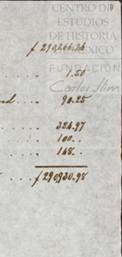 CENTRO DE
ESTUDIOS
DE HISTORIA
DE MÉXICO
FUNDACIÓN
Carlos Slim
1.50
90.25
324.97
100..
148..
f 290930.98